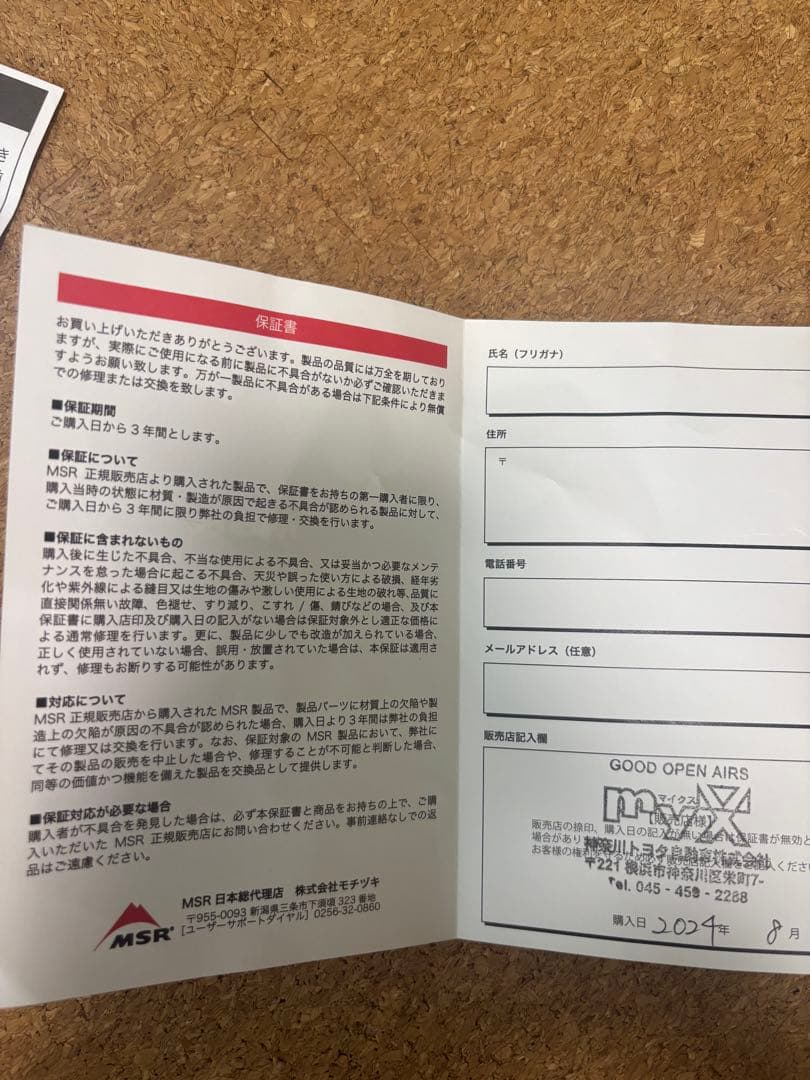 き
保証書
お買い上げいただきありがとうございます。製品の品質には万全を期しており
ますが、実際にご使用になる前に製品に不具合がないか必ずご確認いただきま
すようお願い致します。万が一製品に不具合がある場合は下記条件により無償
での修理または交換を致します。
■保証期間
ご購入日から3年間とします。
■保証について
MSR 正規販売店より購入された製品で、保証書をお持ちの第一購入者に限り、
購入当時の状態に材質・製造が原因で起きる不具合が認められる製品に対して、
ご購入日から3年間に限り弊社の負担で修理・交換を行います。
■保証に含まれないもの
購入後に生じた不具合、不当な使用による不具合、又は妥当かつ必要なメンテ
ナンスを怠った場合に起こる不具合、天災や誤った使い方による破損、経年劣
化や紫外線による縫目又は生地の傷みや激しい使用による生地の破れ等、品質に
直接関係無い故障、色褪せ、すり減り、こすれ / 傷、錆びなどの場合、及び本
保証書に購入店印及び購入日の記入がない場合は保証対象外とし適正な価格に
よる通常修理を行います。更に、製品に少しでも改造が加えられている場合、
正しく使用されていない場合、誤用・放置されていた場合は、本保証は適用さ
れず、修理もお断りする可能性があります。
■対応について
MSR 正規販売店から購入された MSR 製品で、製品パーツに材質上の欠陥や製
造上の欠陥が原因の不具合が認められた場合、購入日より3年間は弊社の負担
にて修理又は交換を行います。なお、保証対象の MSR 製品において、弊社に
てその製品の販売を中止した場合や、修理することが不可能と判断した場合、
同等の価値かつ機能を備えた製品を交換品として提供します。
■保証対応が必要な場合
購入者が不具合を発見した場合は、必ず本保証書と商品をお持ちの上で、ご購
入いただいた MSR 正規販売店にお問い合わせください。事前連絡なしでの返
品はご遠慮ください。
MSR
MSR 日本総代理店 株式会社モチヅキ
〒955-0093 新潟県三条市下須頃 323 番地
[ユーザーサポートダイヤル] 0256-32-0860
氏名（フリガナ）
住所
〒
電話番号
メールアドレス（任意）
販売店記入欄
GOOD OPEN AIRS
マイクス
myX
【販売店様】
販売店の捺印、購入日の記入が無い場合は保証書が無効と
場合があり
お客様の権利を
神奈川トヨタ自動車株式会社
〒221 横浜市神奈川区栄町7-
Tel. 045-459-2268
購入日 2024年 8月